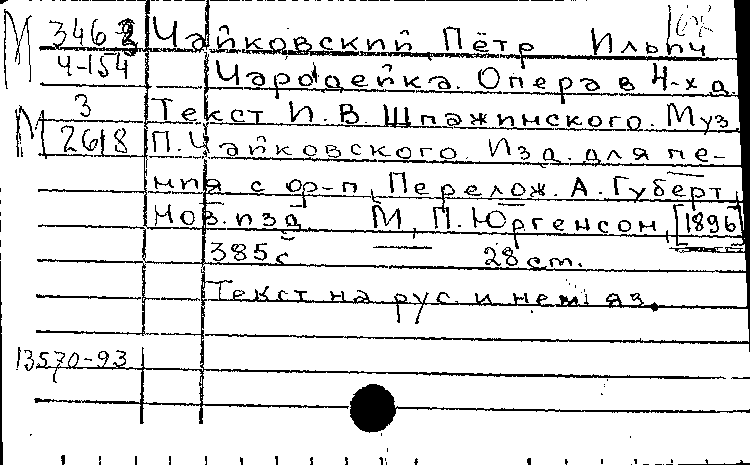 М 346-2 Чайковский, Пётр Ильич
Ч-154 Чародейка. Опера в 4-х д.
3 Текст И. В. Шпажинского. Муз.
М 2618 П. Чайковского. Изд. для пе-
ния с ф-п. Перелож. А. Губерт.
Нов. изд. М., П. Юргенсон, [1896]
385 с 28 ст.
Текст на рус. и нем. яз.
13570-93